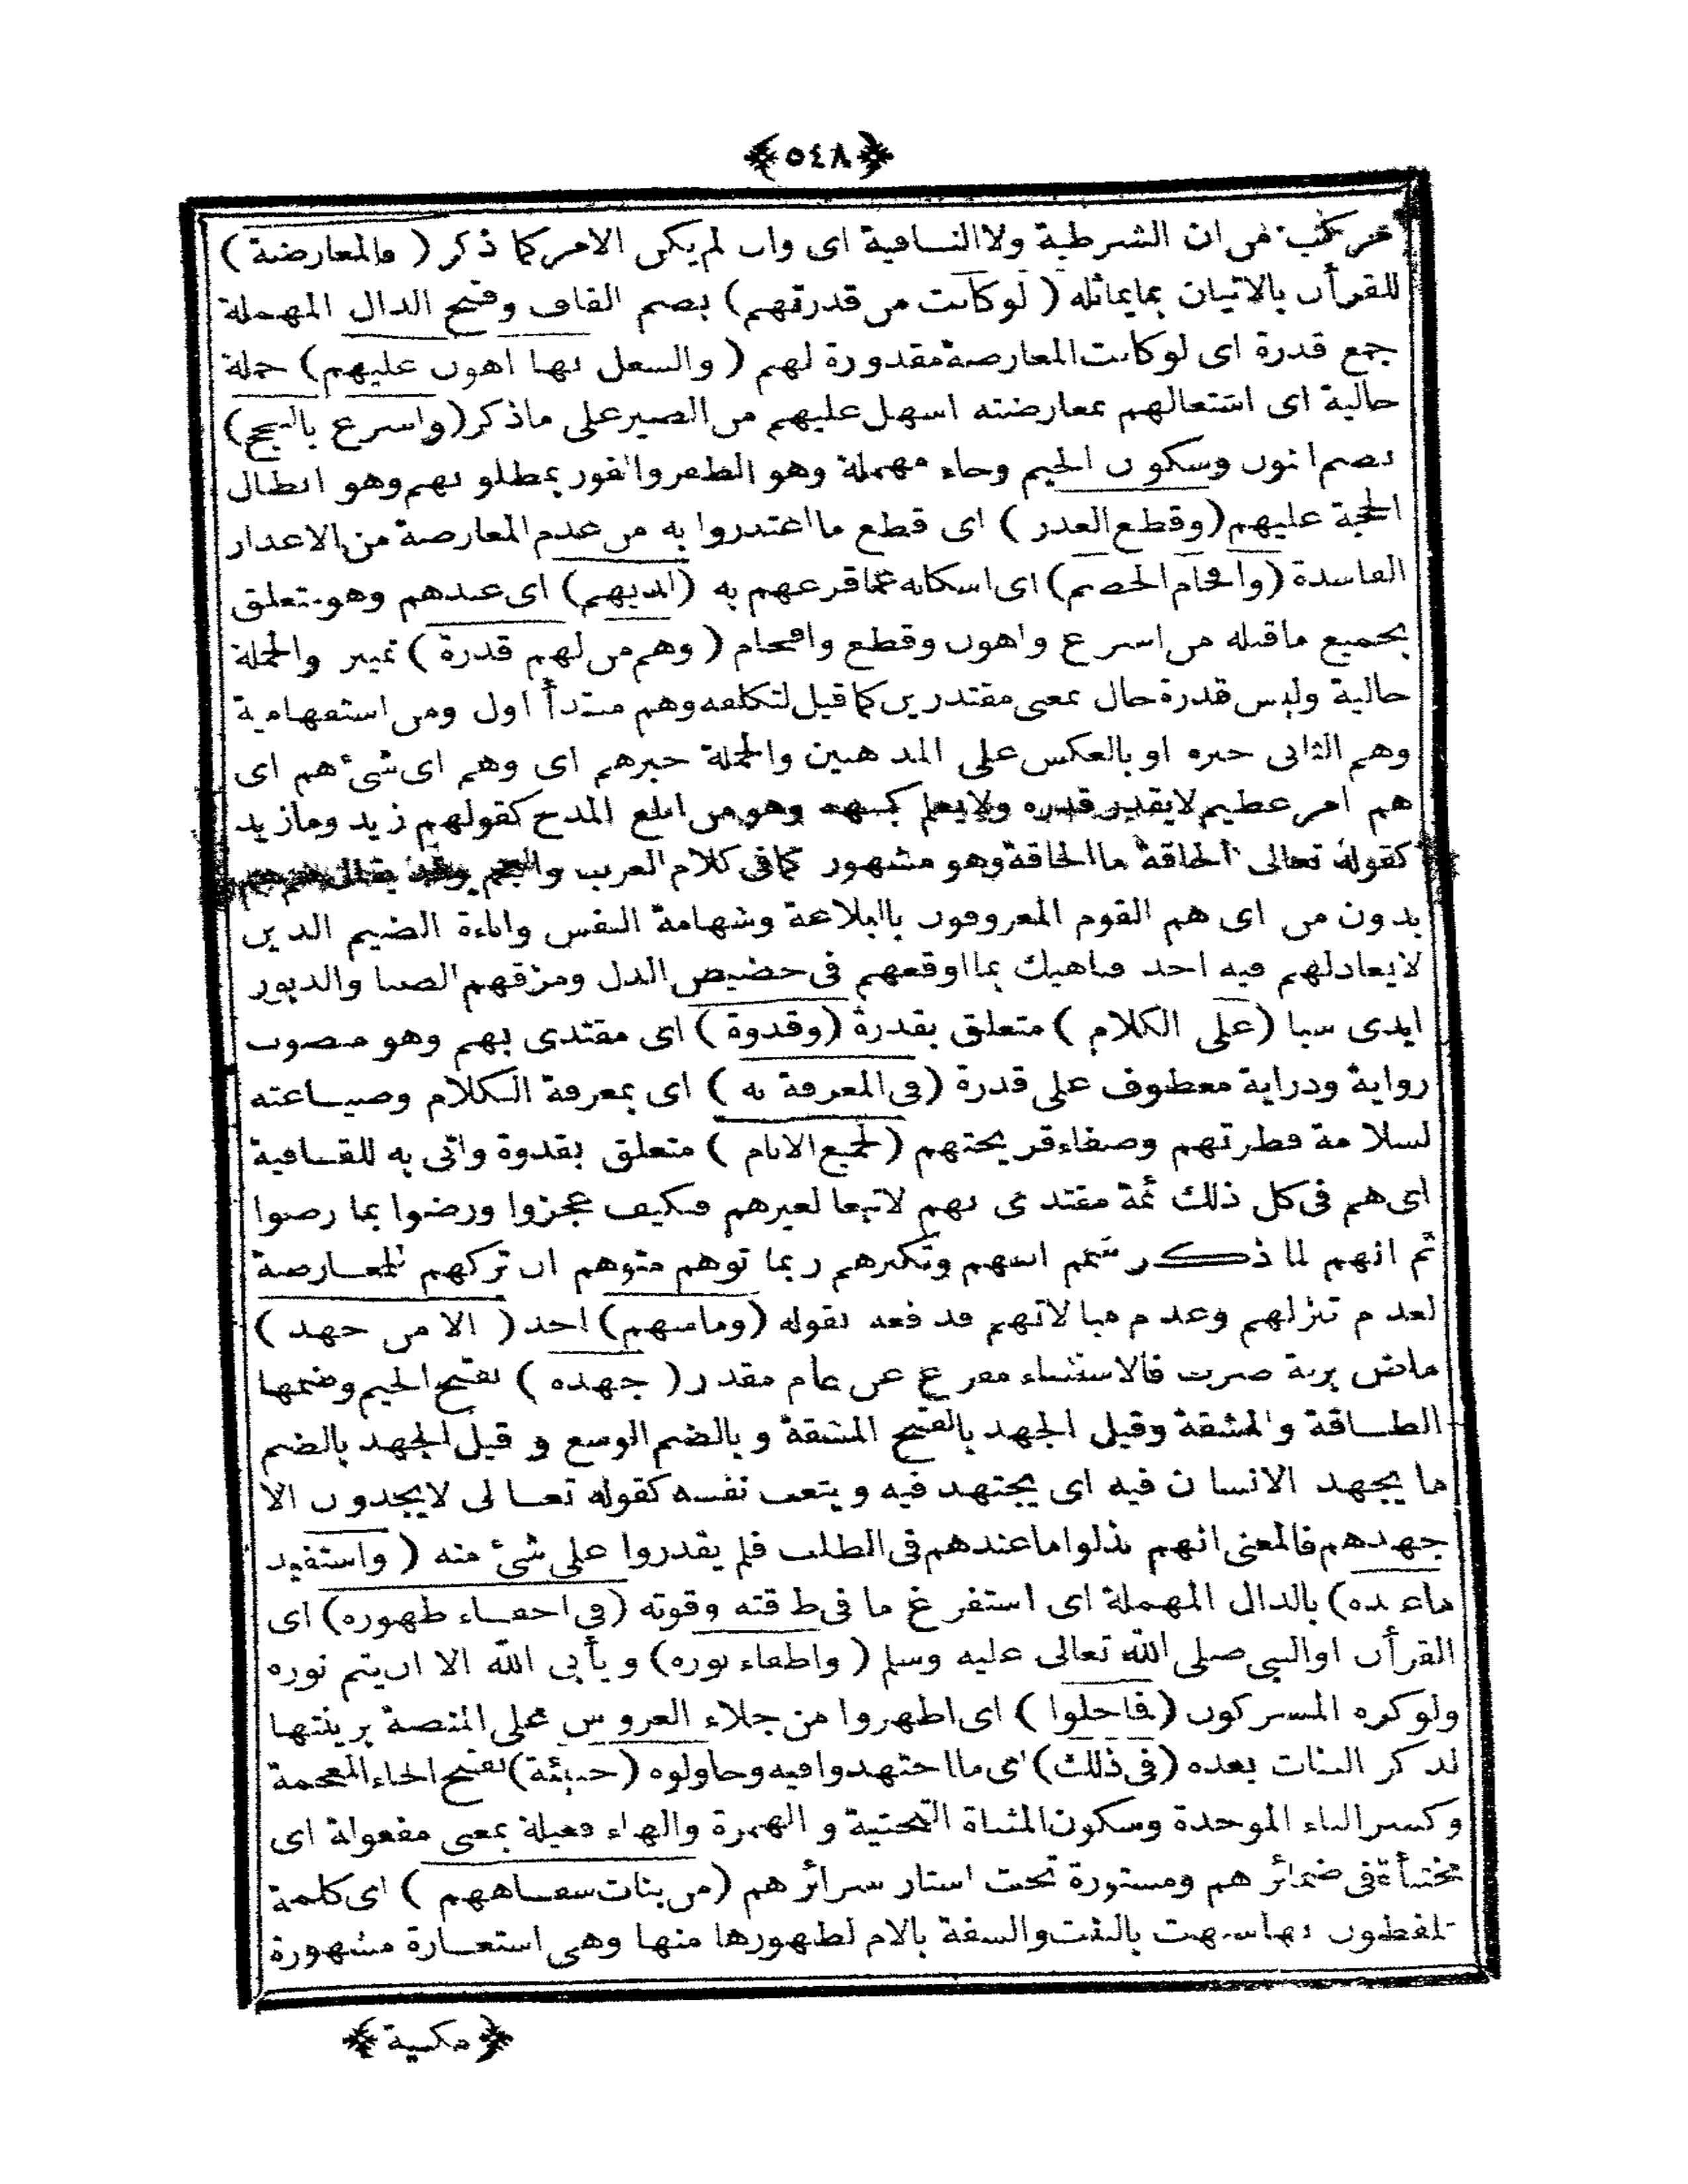 ﴿٥٤٨﴾
مركب من ان الشرطية ولا النافية اى وان لم يكن الامر كما ذكر ( فالمعارضة )
للقرأن بالاتيان بمايماثله ( لوكانت من قدرتهم ) بضم القاف وفتح الدال المهملة
جمع قدرة اى لوكانت المعارضة مقدورة لهم ( والفعل بها اهون عليهم ) جملة
حالية اى اشتغالهم بمعارضته اسهل عليهم من الصبر على ماذكر ( واسرع بالنجح )
بضم النون وسكون الجيم وحاء مهملة وهو الظفر والفوز بمطلوبهم وهو ابطال
الحجة عليهم ( وقطع العذر ) اى قطع مااعتذروا به من عدم المعارضة من الاعذار
الفاسدة ( وافحام الخصم ) اى اسكاته عما قرعهم به ( لديهم ) اى عندهم وهو متعلق
بجميع ماقبله من اسرع واهون وقطع وافحام ( وهم من لهم قدرة ) تمييز والجملة
حالية وليس قدرة حال بمعنى مقتدرين كما قيل لتكلفه وهم مبتدأ اول ومن استفهامية
وهم الثانى خبره او بالعكس على المذهبين والجملة خبرهم اى وهم اى شئ هم اى
هم امر عظيم لايقدر قدره ولايعلم كنهه وهو من ابلغ المدح كقولهم زيد ومازيد
كقوله تعالى الحاقة ماالحاقة وهو مشهور كما فى كلام العرب والعجم وقد يقال هم هم
بدون من اى هم القوم المعروفون بالبلاغة وشهامة النفس واباءة الضيم الذين
لايعادلهم فيه احد فناهيك بما اوقعهم فى حضيض الذل ومزقهم الصبا والدبور
ايدى سبا ( على الكلام ) متعلق بقدرة ( وقدوة ) اى مقتدى بهم وهو منصوب
رواية ودراية معطوف على قدرة ( فى المعرفة به ) اى بمعرفة الكلام وصياغته
لسلامة فطرتهم وصفاء قريحتهم ( لجميع الانام ) متعلق بقدوة واتى به للقافية
اى هم فى كل ذلك ئمة مقتدى بهم لاتبعا لغيرهم فكيف عجزوا ورضوا بما رضوا
ثم انهم لما ذكر شمم انفهم وتكبرهم ربما توهم متوهم ان تركهم للمعارضة
لعدم تنزلهم وعدم مبالاتهم فدفعه بقوله ( ومامنهم ) احد ( الا من جهد )
ماض بزنة ضرب فالاستثناء مفرغ عن عام مقدر ( جهده ) بفتح الجيم وضمها
الطاقة والمشقة وقيل الجهد بالفتح المشقة وبالضم الوسع وقيل الجهد بالضم
ما يجهد الانسان فيه اى يجتهد فيه ويتعب نفسه كقوله تعالى لايجدون الا
جهدهم فالمعنى انهم بذلوا ماعندهم فى الطلب فلم يقدروا على شئ منه ( واستنفد
ماعنده ) بالدال المهملة اى استفرغ ما فى طاقته وقوته ( فى اخفاء ظهوره ) اى
القرأن اوالنبى صلى الله تعالى عليه وسلم ( واطفاء نوره ) ويأبى الله الا ان يتم نوره
ولوكره المشركون ( فاجلوا ) اى اظهروا من جلاء العروس على المنصة بزينتها
لذكر البنات بعده ( فى ذلك ) اى مااجتهدوا فيه وحاولوه ( خبيئة ) بفتح الخاء المعجمة
وكسر الباء الموحدة وسكون المثناة التحتية و الهمزة والهاء فعيلة بمعنى مفعولة اى
مختبأة فى ضمائرهم ومستورة تحت استار سرائرهم ( من بنات شفاههم ) اى كلمة
تلفظون بها شبهت بالبنت والشفة بالام لظهورها منها وهى استعارة مشهورة
﴿مكنية﴾